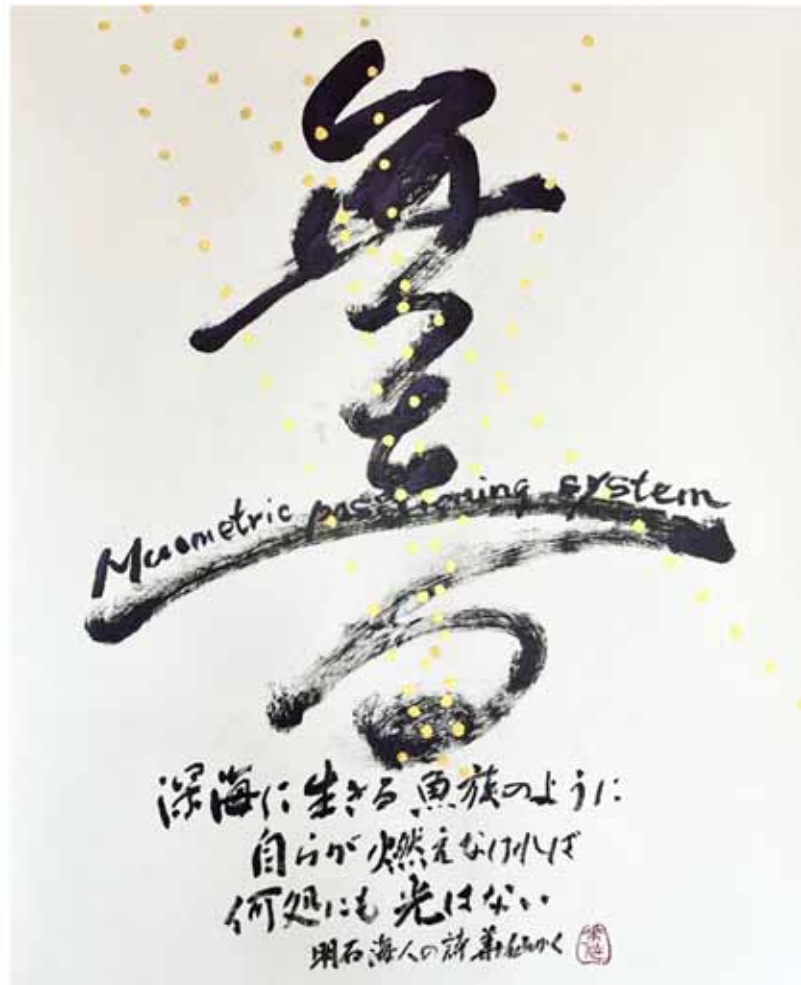 Muometric positioning system
深海に生きる魚族のように
自らが燃えなければ
何処にも光はない
明石海人の詩